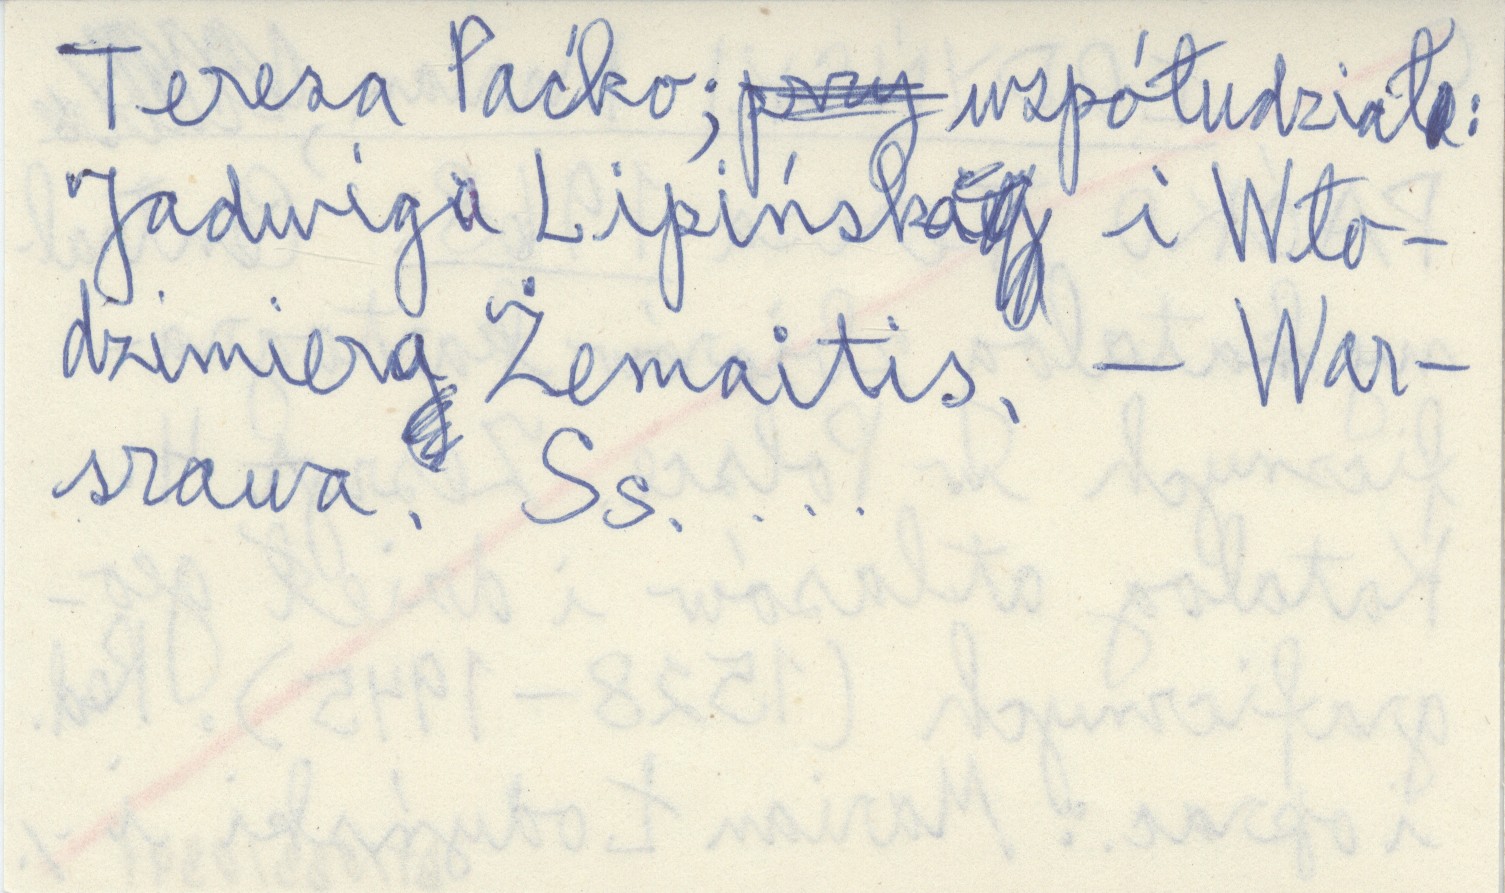 Teresa Paćko; przy współudziale:
Jadwiga Lipińska i Wło-
dzimierz Żemaitis. — War-
szawa. Ss. . . . .